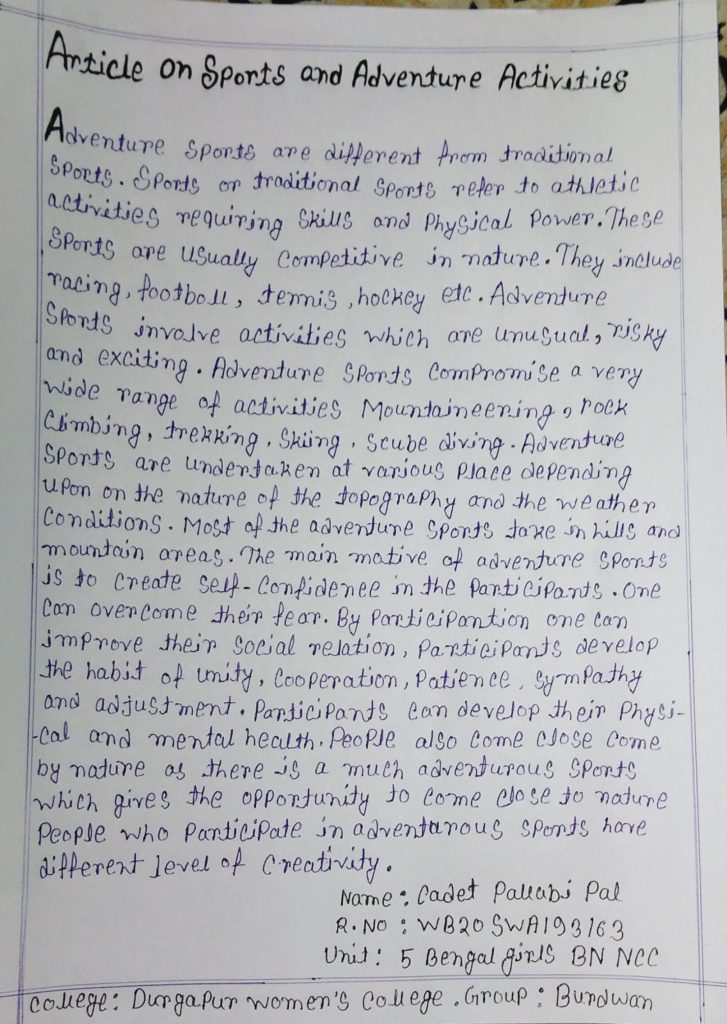 Article on Sports and Adventure Activities
Adventure sports are different from traditional
sports. Sports or traditional sports refer to athletic
activities requiring skills and physical power. These
sports are usually competitive in nature. They include
racing, football, tennis, hockey etc. Adventure
sports involve activities which are unusual, risky
and exciting. Adventure sports compromise a very
wide range of activities Mountaineering, rock
climbing, trekking, skiing, scube diving. Adventure
sports are undertaken at various place depending
upon on the nature of the topography and the weather
conditions. Most of the adventure sports take in hills and
mountain areas. The main motive of adventure sports
is to create self-confidence in the participants. One
can overcome their fear. By participantion one can
improve their social relation, participants develop
the habit of unity, cooperation, patience, sympathy
and adjustment. Participants can develop their physi-
-cal and mental health. People also come close come
by nature as there is a much adventurous sports
which gives the opportunity to come close to nature
People who participate in adventarous sports have
different level of creativity.
Name: Cadet Pallabi Pal
R.No: WB20SWA193163
Unit: 5 Bengal girls BN NCC
College: Durgapur women's college. Group: Burdwan